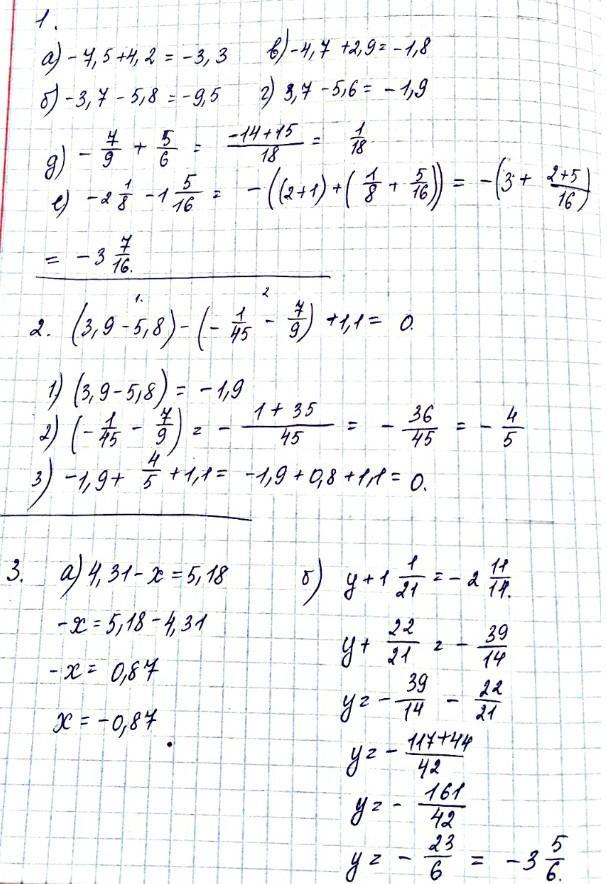 1.
а) -7,5+4,2 = -3,3 в) -4,7+2,9 = -1,8
б) -3,7-5,8 = -9,5 г) 3,7-5,6 = -1,9
д) - 7/9 + 5/6 = (-14+15)/18 = 1/18
е) -2 1/8 - 1 5/16 = -((2+1)+(1/8 + 5/16)) = -(3 + (2+5)/16)
= -3 7/16.
1. 2
2. (3,9-5,8)-(- 1/45 - 7/9)+1,1 = 0.
1) (3,9-5,8) = -1,9
2) (- 1/45 - 7/9) = - (1+35)/45 = - 36/45 = - 4/5
3) -1,9+ 4/5 +1,1 = -1,9+0,8+1,1 = 0.
3. а) 4,31-x = 5,18
-x = 5,18-4,31
-x = 0,87
x = -0,87
б) y+1 1/21 = -2 11/14.
y+ 22/21 = - 39/14
y = - 39/14 - 22/21
y = - (117+44)/42
y = - 161/42
y = - 23/6 = -3 5/6.